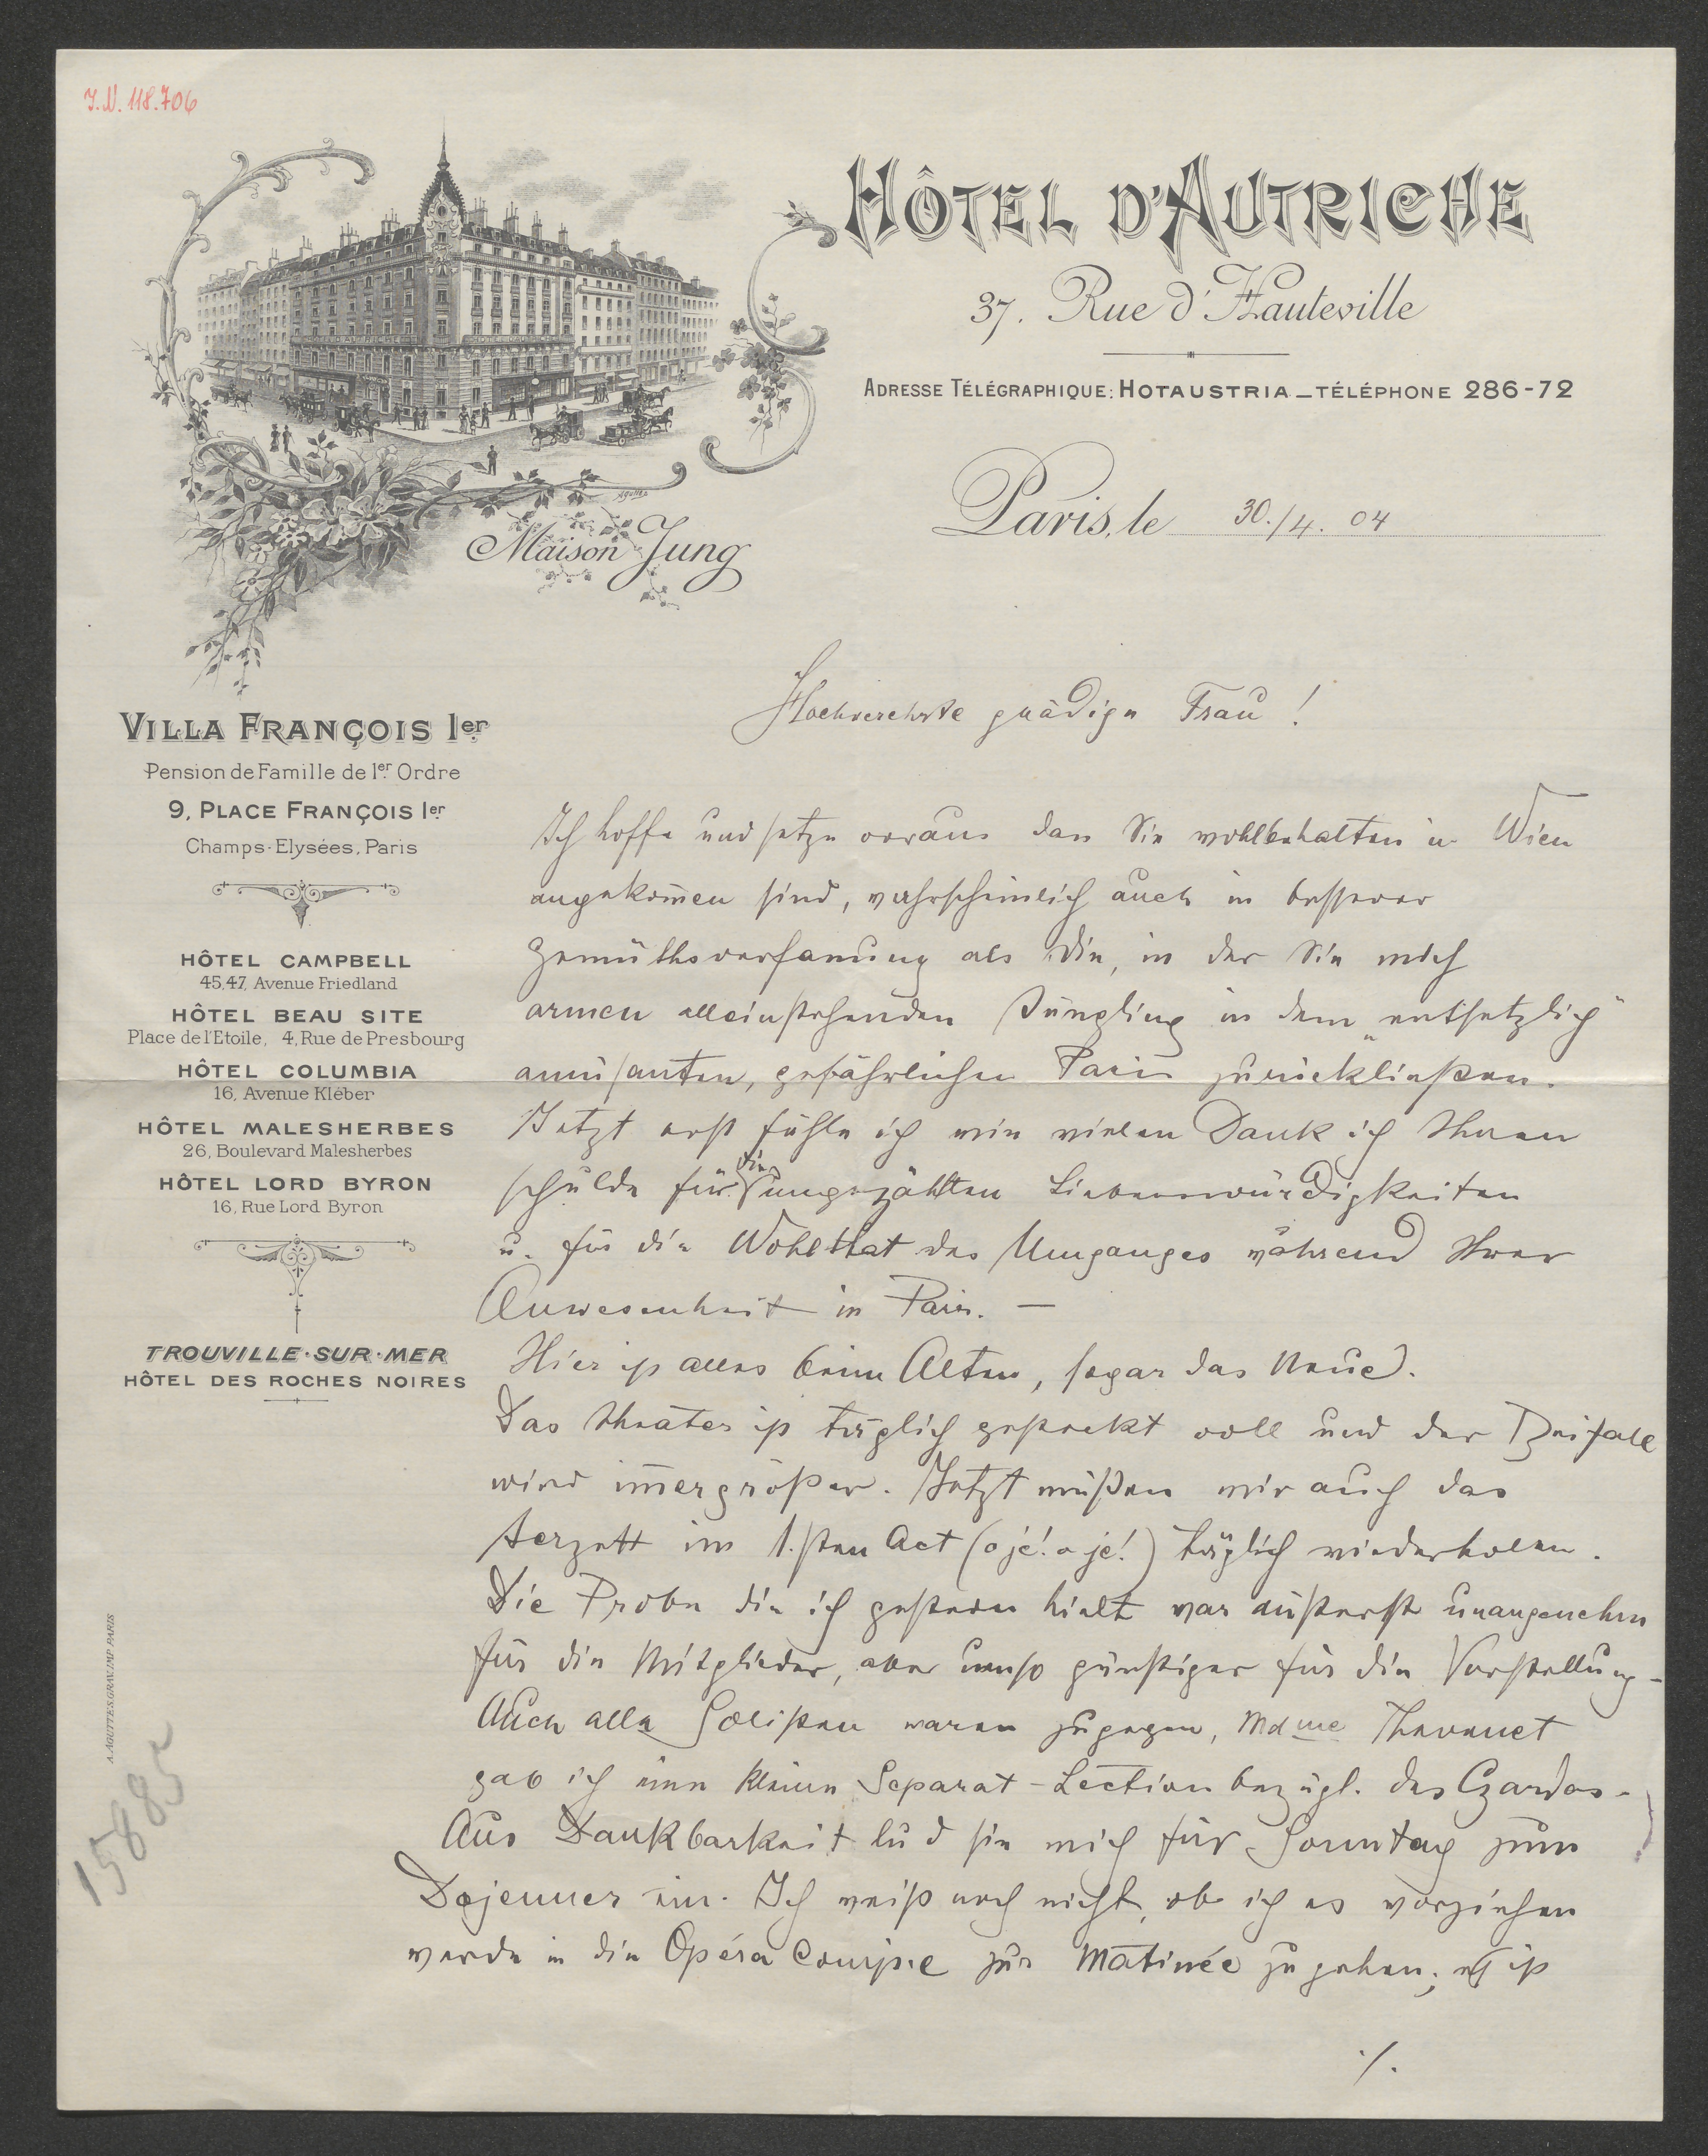 I.N. 118.706
HÔTEL D'AUTRICHE
37. Rue d'Hauteville
ADRESSE TÉLÉGRAPHIQUE: HOTAUSTRIA — TÉLÉPHONE 286-72
Paris, le 30./4. 04
Maison Jung
VILLA FRANÇOIS Ier
Pension de Famille de 1er Ordre
9, PLACE FRANÇOIS Ier
Champs-Elysées, Paris
HÔTEL CAMPBELL
45,47, Avenue Friedland
HÔTEL BEAU SITE
Place de l'Etoile, 4, Rue de Presbourg
HÔTEL COLUMBIA
16, Avenue Kléber
HÔTEL MALESHERBES
26, Boulevard Malesherbes
HÔTEL LORD BYRON
16, Rue Lord Byron
TROUVILLE-SUR-MER
HÔTEL DES ROCHES NOIRES
A. AGUTTES. GRAV. IMP. PARIS
15885
Hochverehrte gnädige Frau!
Ich hoffe und setze voraus dass Sie wohlbehalten in Wien
angekom̄en sind, wahrscheinlich auch in besserer
Gemüthsverfassung als die, in der Sie mich
armen alleinstehenden Jüngling in dem „entsetzlich"
amüsanten, gefährlichen Paris zurückließen.
Jetzt erst fühle ich wie vielen Dank ich Ihnen
schulde für die ungezählten Liebenswürdigkeiten
u. für die Wohlthat des Umganges während Ihrer
Anwesenheit in Paris. —
Hier ist alles beim Alten, sogar das Neue.
Das Theater ist täglich gesteckt voll und der Beifall
wird im̄er größer. Jetzt müßen wir auch das
Terzett im 1.sten Act (o je! o je!) täglich wiederholen.
Die Probe die ich gestern hielt war äußerst unangenehm
für die Mitglieder, aber umso günstiger für die Vorstellung -
Auch alle Solisten waren zugegen, Mdme Thevenet
gab ich eine kleine Separat-Lection bezügl. des Czardas.
Aus Dankbarkeit lud sie mich für Sonntag zum
Dejeuner ein. Ich weiß noch nicht, ob ich es vorziehen
werde in die Opéra Comique zur Matinée zu gehen; es ist
./.